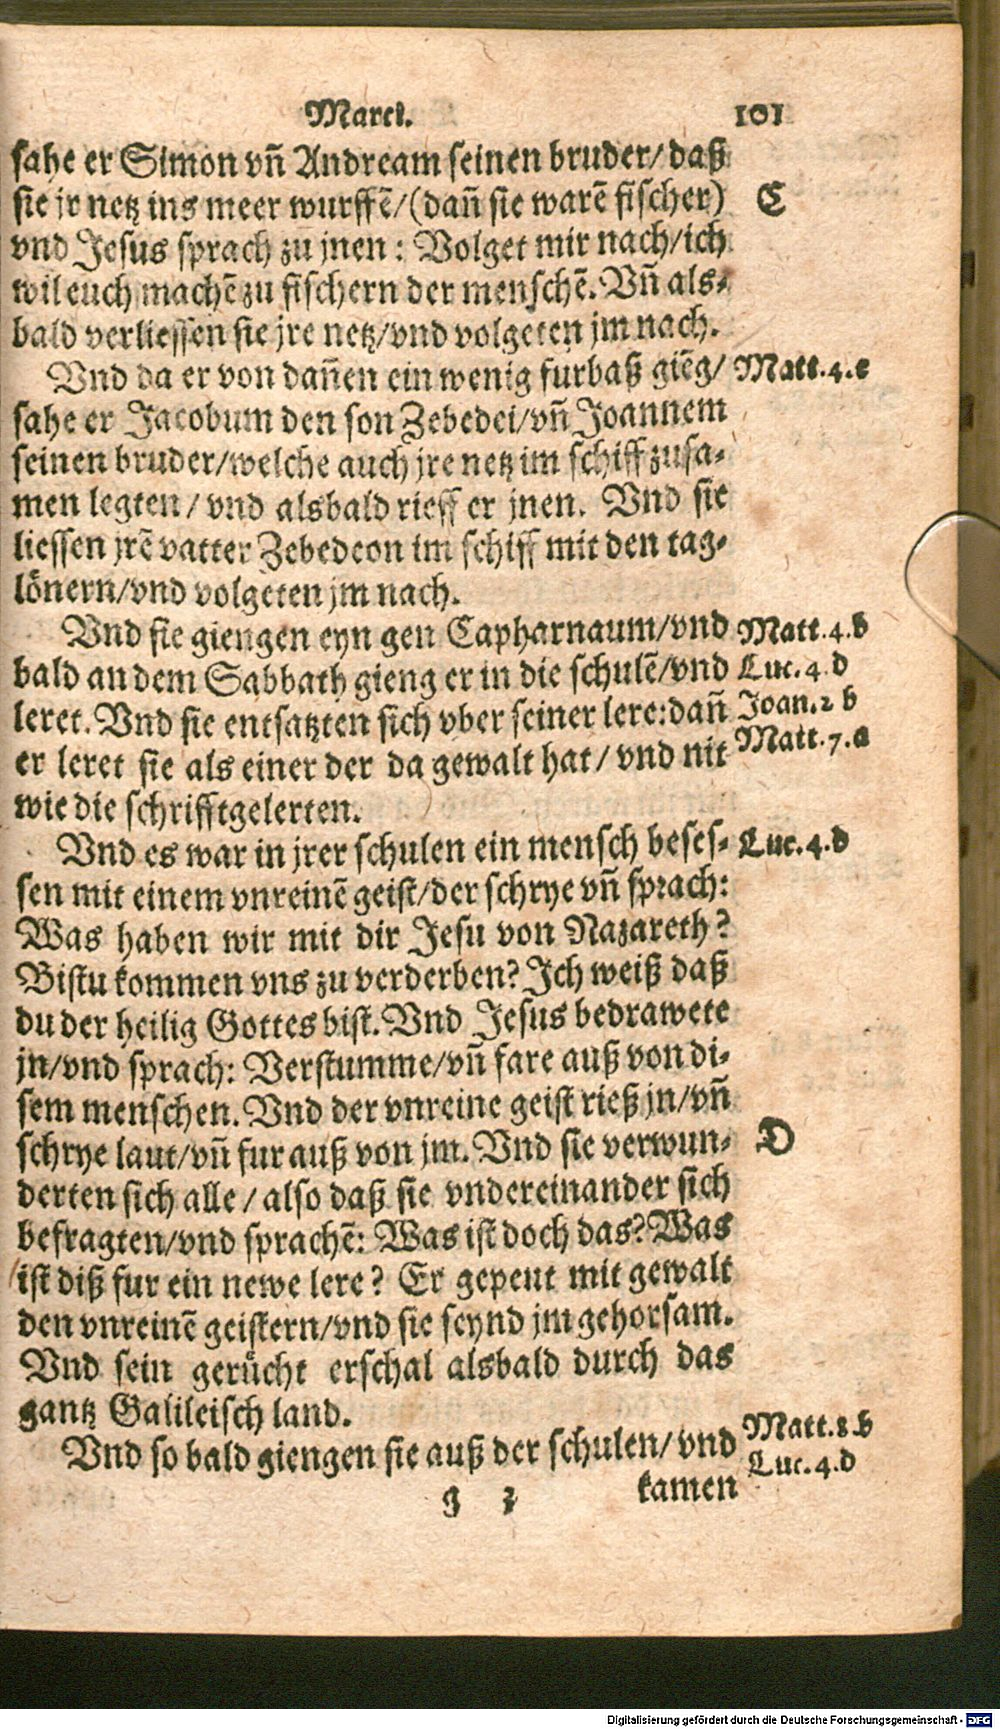 Marci. 101
sahe er Simon vñ Andream seinen bruder/ daß
sie jr netz ins meer wurffē/(dañ sie warē fischer) C
vnd Jesus sprach zu jnen: Volget mir nach/ich
wil euch machē zu fischern der menschē. Vñ als-
bald verliessen sie jre netz/vnd volgeten jm nach.
Vnd da er von dañen ein wenig furbaß giēg/ Matt.4.c
sahe er Jacobum den son Zebedei/vñ Joannem
seinen bruder/welche auch jre netz im schiff zusa-
men legten/ vnd alsbald rieff er jnen. Vnd sie
liessen jrē vatter Zebedeon im schiff mit den tag-
lönern/vnd volgeten jm nach.
Vnd sie giengen eyn gen Capharnaum/vnd Matt.4.b
bald an dem Sabbath gieng er in die schulē/vnd Luc.4.d
leret. Vnd sie entsatzten sich vber seiner lere:dañ Joan.2 b
er leret sie als einer der da gewalt hat/ vnd nit Matt.7.a
wie die schrifftgelerten.
Vnd es war in jrer schulen ein mensch beses- Luc.4.d
sen mit einem vnreinē geist/der schrye vñ sprach:
Was haben wir mit dir Jesu von Nazareth?
Bistu kommen vns zu verderben? Ich weiß daß
du der heilig Gottes bist. Vnd Jesus bedrawete
jn/vnd sprach: Verstumme/vñ fare auß von di-
sem menschen. Vnd der vnreine geist rieß jn/vñ
schrye laut/vñ fur auß von jm. Vnd sie verwun- D
derten sich alle / also daß sie vndereinander sich
befragten/vnd sprachē: Was ist doch das? Was
ist diß fur ein newe lere? Er gepeut mit gewalt
den vnreinē geistern/vnd sie seynd jm gehorsam.
Vnd sein gerücht erschal alsbald durch das
gantz Galileisch land.
Vnd so bald giengen sie auß der schulen/ vnd Matt.8.b
Luc.4.d
g 3 kamen
Digitalisierung gefördert durch die Deutsche Forschungsgemeinschaft - DFG